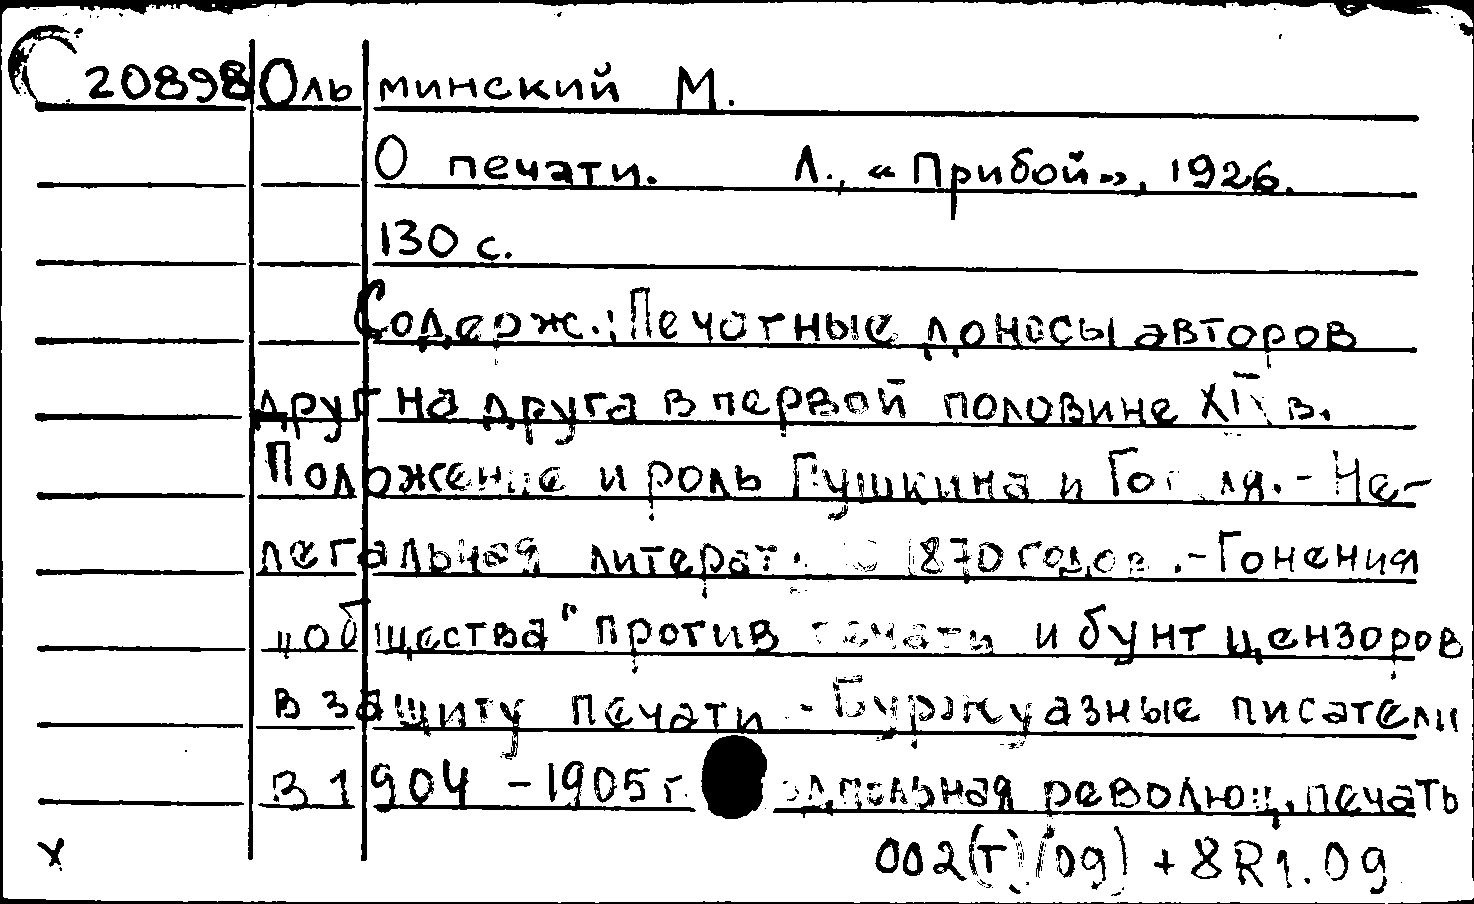 20898 Ольминский М.
О печати. Л., «Прибой», 1926.
130 с.
Содерж.: Печатные доносы авторов
друг на друга в первой половине XIX в.
Положение и роль Пушкина и Гоголя. - Не-
легальная литерат. 1870 годов. - Гонения
„общества" против печати и бунт цензоров
в защиту печати - Буржуазные писатели
в 1904 - 1905 г. подпольная революц. печать
х 002(Т)(09) + 8R1.09